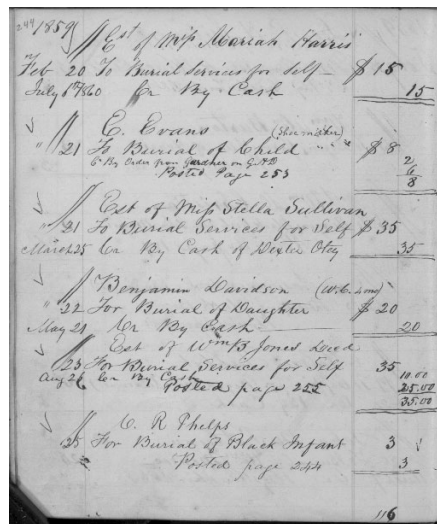 244 1859
Est of Miss Mariah Harris
Feb 20 To Burial Services for Self $ 15
July 6th 1860 Cr By Cash 15
E. Evans (Shoe maker)
" 21 To Burial of Child " " " $ 8
6$ By Order from Gardner on G.A.D 2
Posted Page 253 6
8
Est of Miss Stella Sullivan
" 21 To Burial Services for Self $ 35
March 25 Cr By Cash of Dexter Otey 35
Benjamin Davidson (W.C. Long)
" 22 For Burial of Daughter $ 20
May 21 Cr By Cash 20
Est of Wm B Jones Decd
" 23 For Burial Services for Self 35
Aug 26 Cr By Cash 10.00
Posted page 255 25.00
35.00
C. R Phelps
" 25 For Burial of Black Infant 3
Posted page 244 3
116